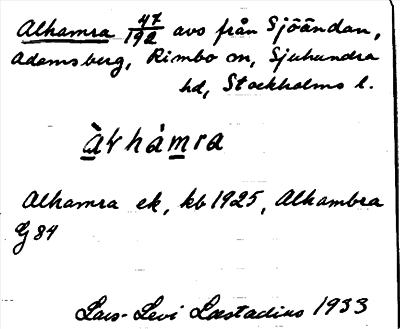 Alhamra 47/192 avs från Sjöändan,
Adamsberg, Rimbo sn, Sjuhundra
hd, Stockholms l.
àrhámra
Alhamra ek, kb 1925, Alhambra
G 84
Lars-Levi Læstadius 1933